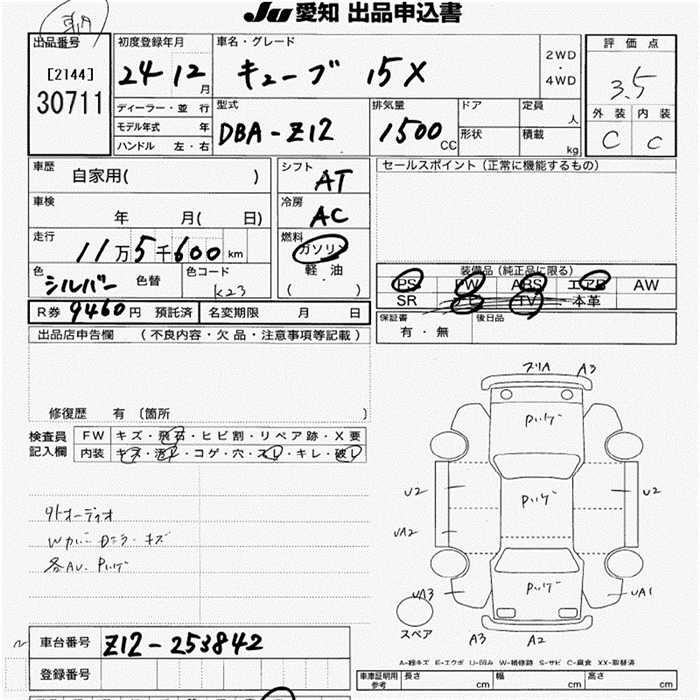 JU 愛知 出品申込書
出品番号 [2144] 30711
初度登録年月 24 12月
車名・グレード キューブ 15X
2WD・4WD
評価点 3.5
ディーラー・並行
モデル年式 年
ハンドル 左・右
型式 DBA-Z12
排気量 1500cc
ドア 形状
定員 人
積載 kg
外装 C 内装 C
車歴 自家用( )
シフト AT
セールスポイント (正常に機能するもの)
車検 年 月( 日)
冷房 AC
走行 11万5千600km
燃料 ガソリン
軽油
( ・ )
色 シルバー 色替 色コード K23
装備品 (純正品に限る)
PS PW ABS エアB AW
SR TV 本革
R券 9460円 預託済 名変期限 月 日
保証書 有・無 後日品
出品店申告欄 (不良内容・欠品・注意事項等記載)
修復歴 有 〔箇所 〕
検査員記入欄
FW キズ・飛石・ヒビ割・リペア跡・X要
内装 キズ・汚レ・コゲ・穴・スレ・キレ・破レ
外オーディオ
キズ
各AU.
A3
U2 U2
UA2
UA3 UA1
スペア
A3 A2
A-線キズ E-エクボ U-凹み W-補修跡 S-サビ C-腐食 XX-取替済
車台番号 Z12-253842
登録番号
車庫証明用参考 長さ cm 幅 cm 高さ cm